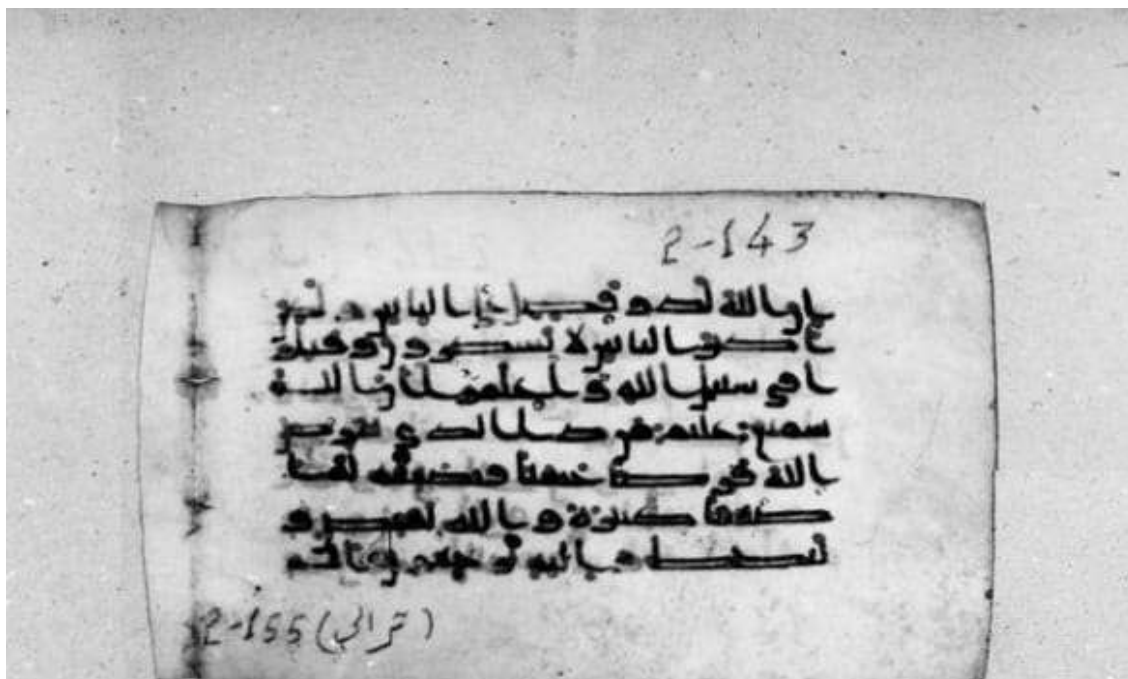 2-143
ان الله لذو فضل على الناس ولكن
اكثر الناس لا يشكرون وقتلو
ا في سبيل الله واعلموا ان الله
سميع عليم من ذا الذي يقرض
الله قرضا حسنا فيضعفه له ا
ضعافا كثيرة والله يقبض و
يبسط واليه ترجعون الم
2-155 (تر الي)